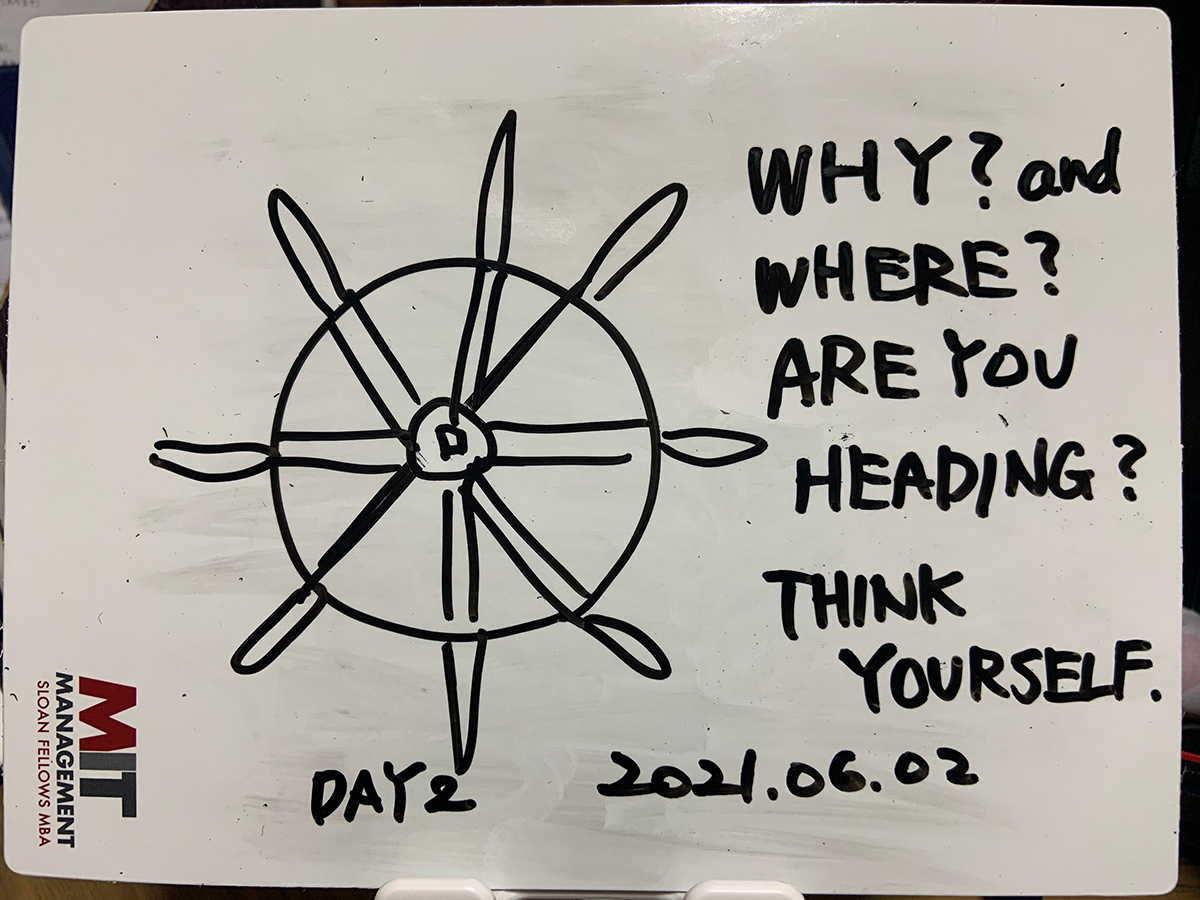 WHY? and
WHERE?
ARE YOU
HEADING?
THINK
YOURSELF.
D
DAY2
2021.06.02
MIT
MANAGEMENT
SLOAN FELLOWS MBA